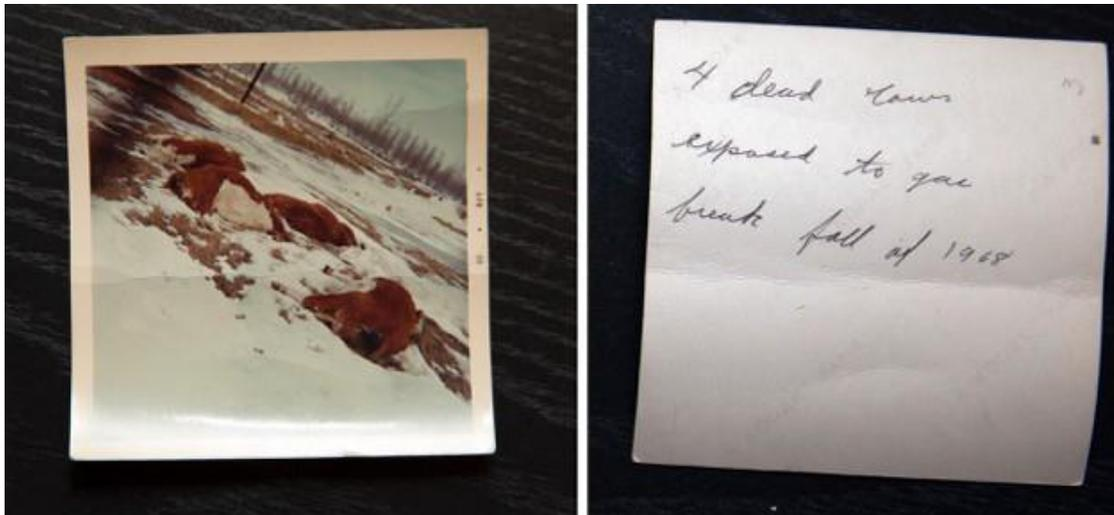 4 dead cows
exposed to gas
break fall of 1968